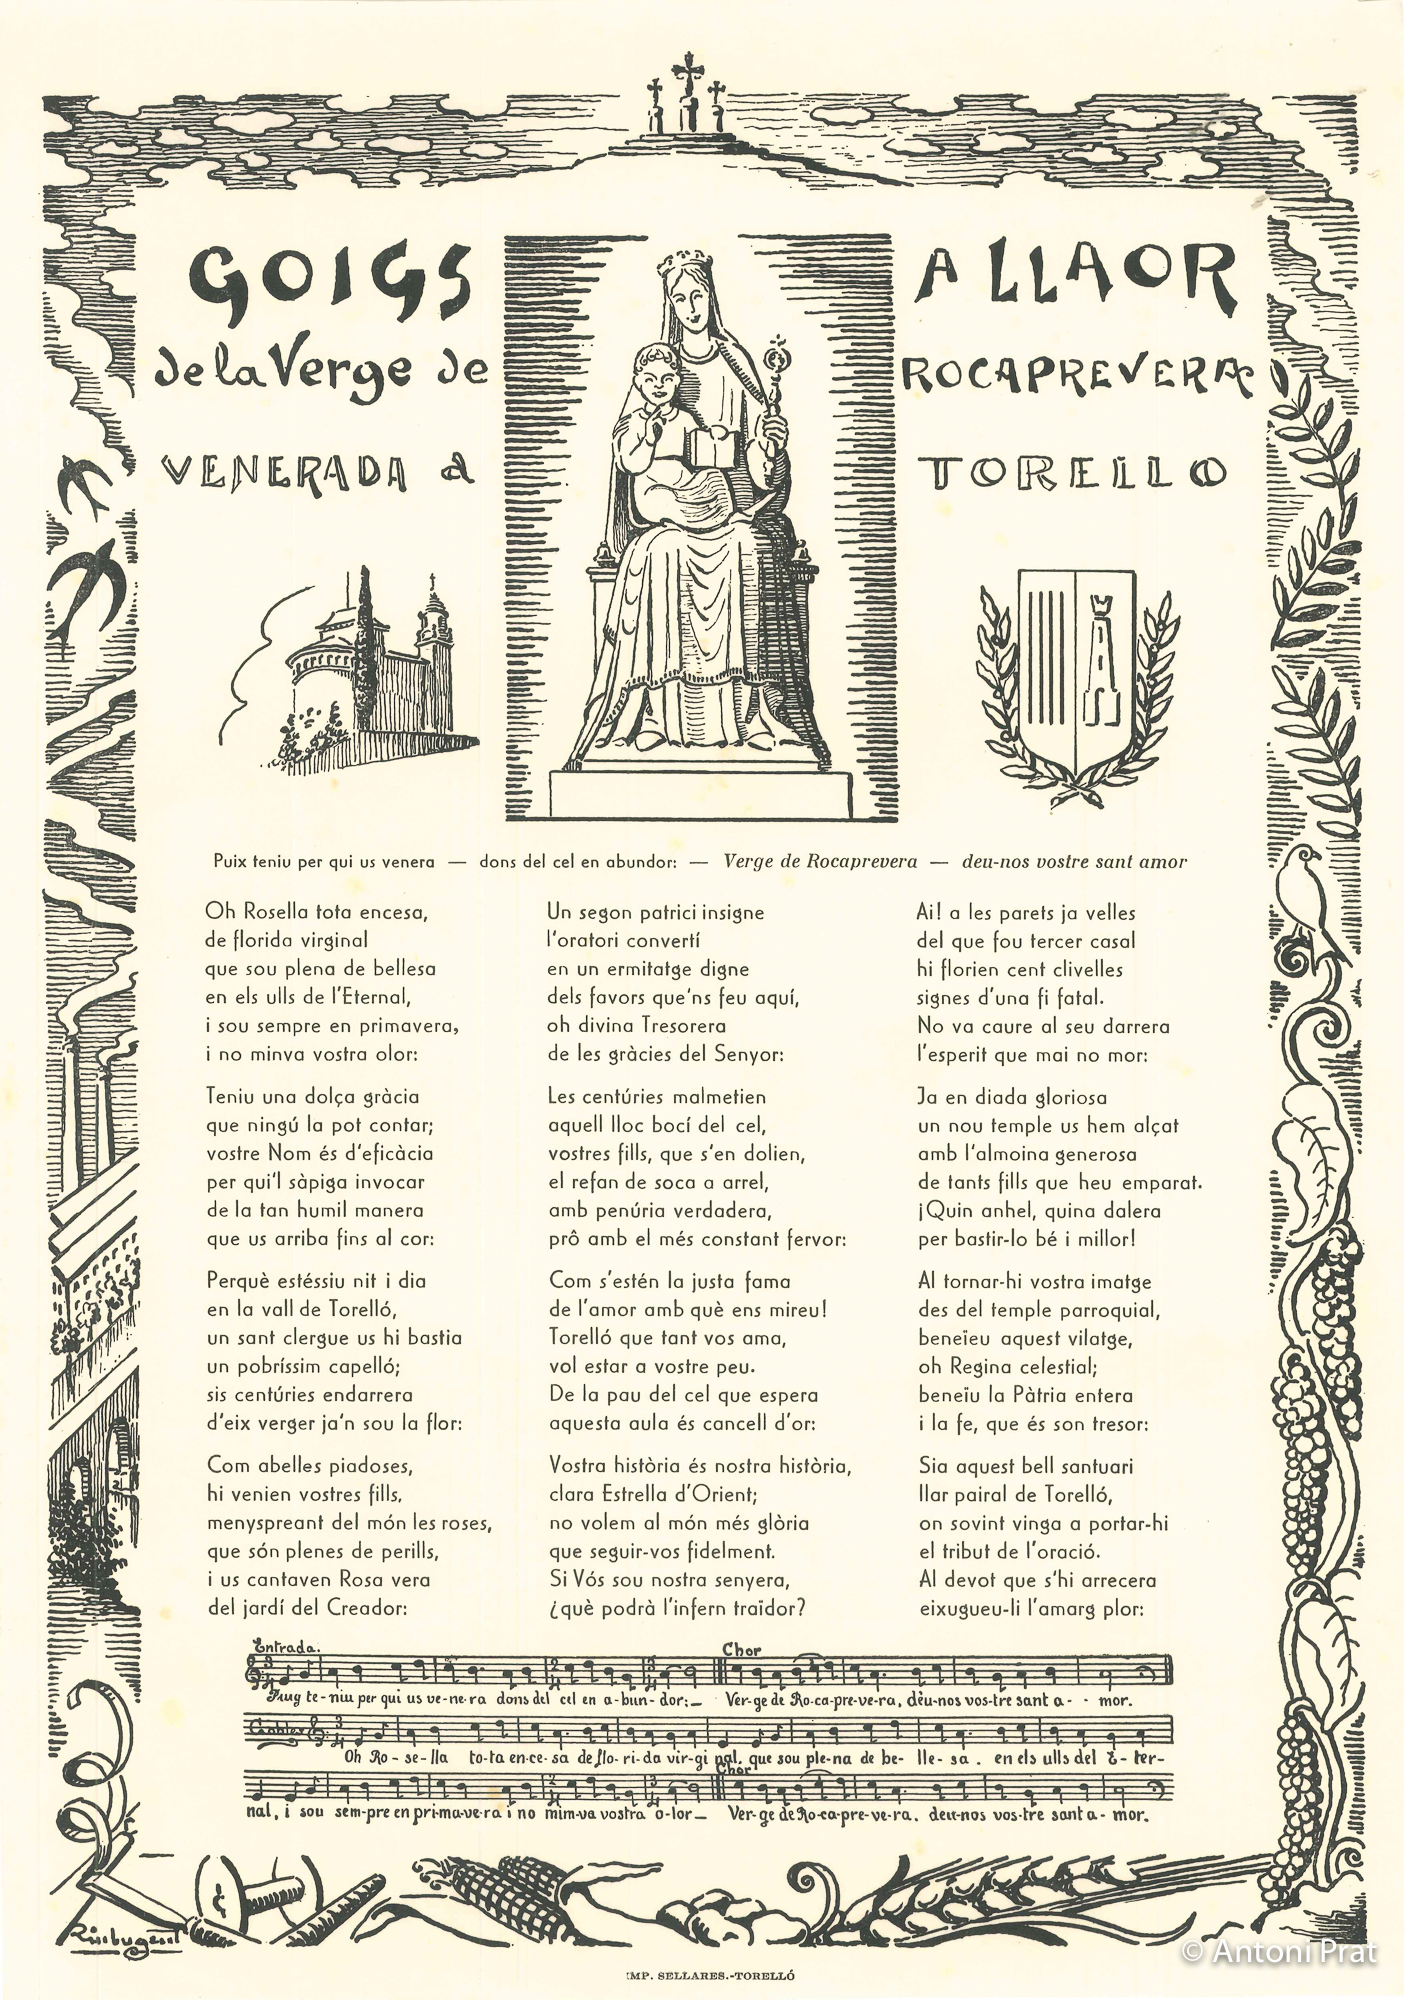 GOIGS A LLAOR
de la Verge de ROCAPREVERA
VENERADA a TORELLO
Puix teniu per qui us venera — dons del cel en abundor: — Verge de Rocaprevera — deu-nos vostre sant amor
Oh Rosella tota encesa,
de florida virginal
que sou plena de bellesa
en els ulls de l'Eternal,
i sou sempre en primavera,
i no minva vostra olor:
Teniu una dolça gràcia
que ningú la pot contar;
vostre Nom és d'eficàcia
per qui'l sàpiga invocar
de la tan humil manera
que us arriba fins al cor:
Perquè estéssiu nit i dia
en la vall de Torelló,
un sant clergue us hi bastia
un pobríssim capelló;
sis centúries endarrera
d'eix verger ja'n sou la flor:
Com abelles piadoses,
hi venien vostres fills,
menyspreant del món les roses,
que són plenes de perills,
i us cantaven Rosa vera
del jardí del Creador:
Un segon patrici insigne
l'oratori convertí
en un ermitatge digne
dels favors que'ns feu aquí,
oh divina Tresorera
de les gràcies del Senyor:
Les centúries malmetien
aquell lloc bocí del cel,
vostres fills, que s'en dolien,
el refan de soca a arrel,
amb penúria verdadera,
prô amb el més constant fervor:
Com s'estén la justa fama
de l'amor amb què ens mireu!
Torelló que tant vos ama,
vol estar a vostre peu.
De la pau del cel que espera
aquesta aula és cancell d'or:
Vostra història és nostra història,
clara Estrella d'Orient;
no volem al món més glòria
que seguir-vos fidelment.
Si Vós sou nostra senyera,
¿què podrà l'infern traïdor?
Ai! a les parets ja velles
del que fou tercer casal
hi florien cent clivelles
signes d'una fi fatal.
No va caure al seu darrera
l'esperit que mai no mor:
Ja en diada gloriosa
un nou temple us hem alçat
amb l'almoina generosa
de tants fills que heu emparat.
¡Quin anhel, quina dalera
per bastir-lo bé i millor!
Al tornar-hi vostra imatge
des del temple parroquial,
beneïeu aquest vilatge,
oh Regina celestial;
beneïu la Pàtria entera
i la fe, que és son tresor:
Sia aquest bell santuari
llar pairal de Torelló,
on sovint vinga a portar-hi
el tribut de l'oració.
Al devot que s'hi arrecera
eixugueu-li l'amarg plor:
Entrada. Chor
Puig te-niu per qui us ve-ne-ra dons del cel en a-bun-dor:— Ver-ge de Ro-ca-pre-ve-ra, déu-nos vos-tre sant a-- mor.
Cobles
Oh Ro-se-lla to-ta en-ce-sa de flo-ri-da vir-gi nal, que sou ple-na de be-lle-sa. en els ulls del E-ter-
Chor
nal, i sou sem-pre en pri-ma-ve-ra i no mim-va vostra o-lor— Ver-ge de Ro-ca-pre-ve-ra. deu-nos vos-tre sant a-mor.
© Antoni Prat
IMP. SELLARES.-TORELLÓ